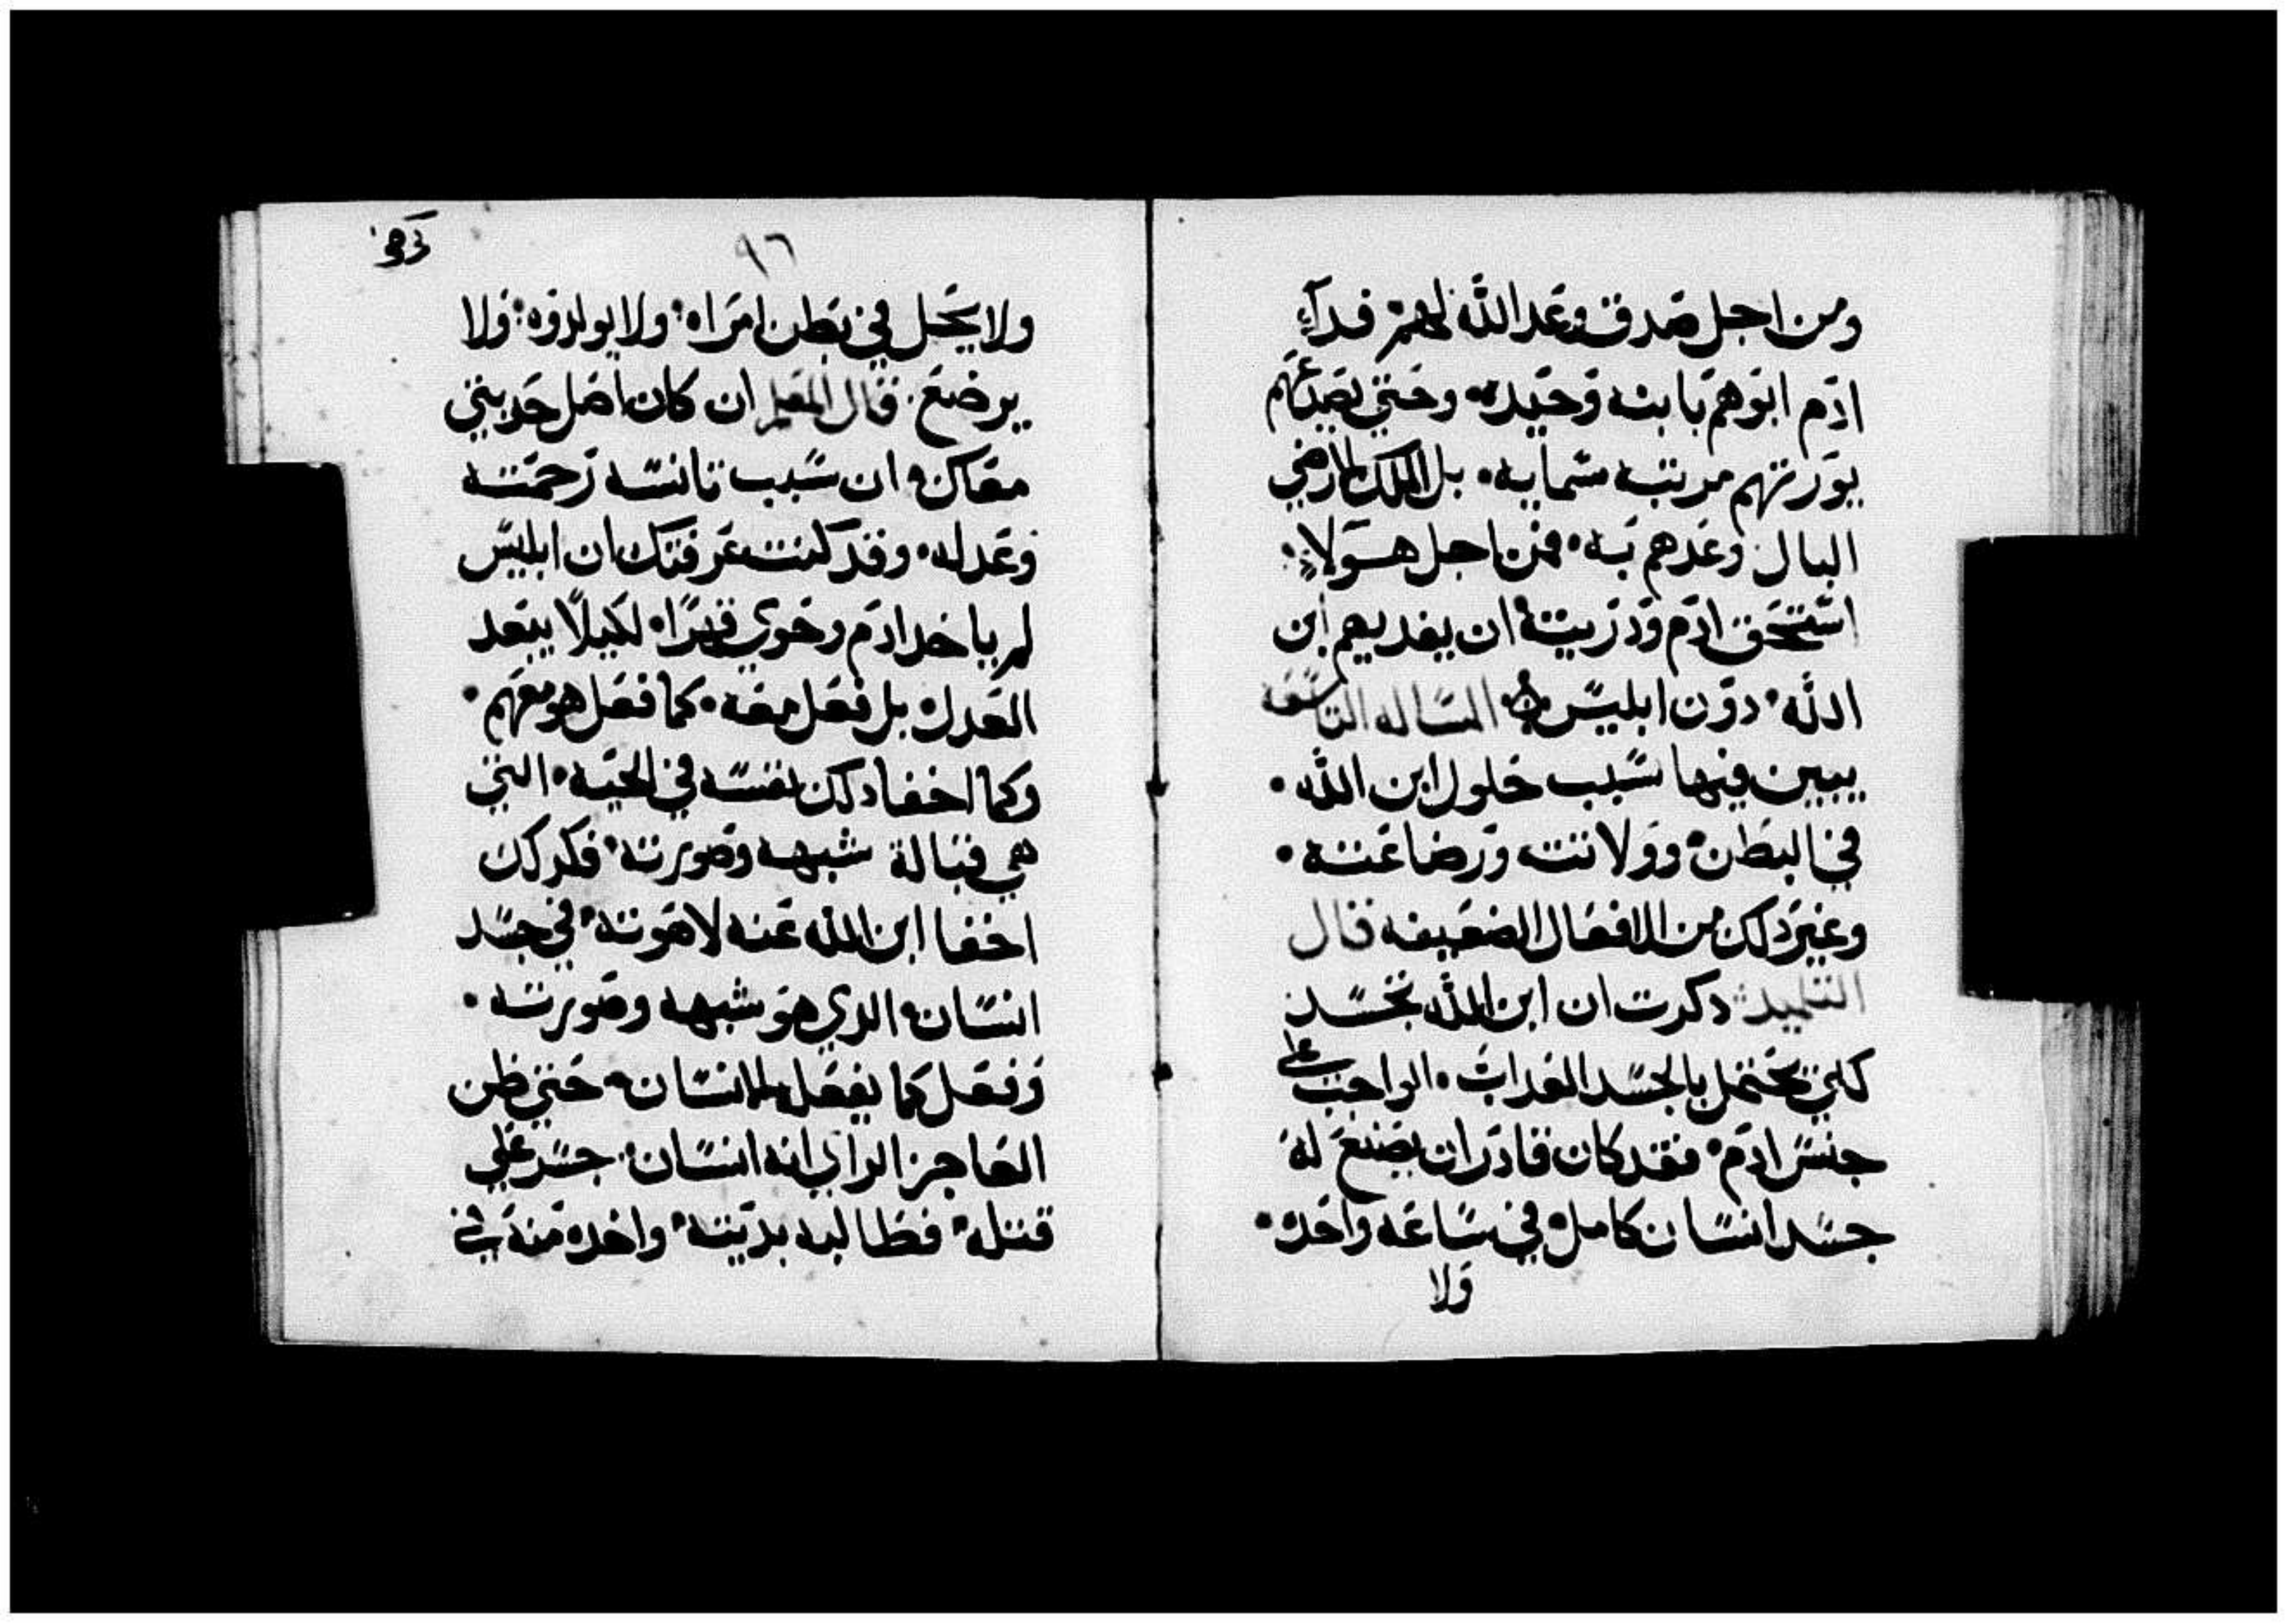 ومن اجل صدق وعد الله لهم فدآء
ادم ابوهم بابنه وحيده وحتي بصدقهم
يورتهم مرتبه سمايه بل الملك الارضي
البال وعدهم به فمن اجل هولاء
استحق ادم ودريته ان يفديهم ابن
الله دون ابليس المساله التاسعه
يبين فيها سبب حلول ابن الله
في البطن وولادته ورضاعته
وغير دلك من الافعال الضعيفه قال
التلميد دكرت ان ابن الله تجسد
لكي يحتمل بالجسد العداب الواجب علي
جنس ادم فقد كان قادر ان يصنع له
جسد انسان كامل في ساعه واحده
ولا
٩٦
ولا يحل في بطن امراه ولا يولدوه ولا
يرضع قال المعلم ان كان اصل حديثي
معاك ان سبب تانسه رحمته
وعدله وقد كنت عرفتك ان ابليس
لم ياخد ادم وحوي قهرًا لكيلا يبعد
العدل بل فعل معه كما فعل هو معهم
وكما اخفا دلك نفسه في الحيه التي
هي قبالة شبهه وصورته فكدلك
اخفا ابن الله عنه لاهوته في جسد
انسان الدي هو شبهه وصورته
وفعل كما يفعل الانسان حتي ظن
العاجز الراي انه انسان جسر علي
قتله فطالبه بديته واخده منه في